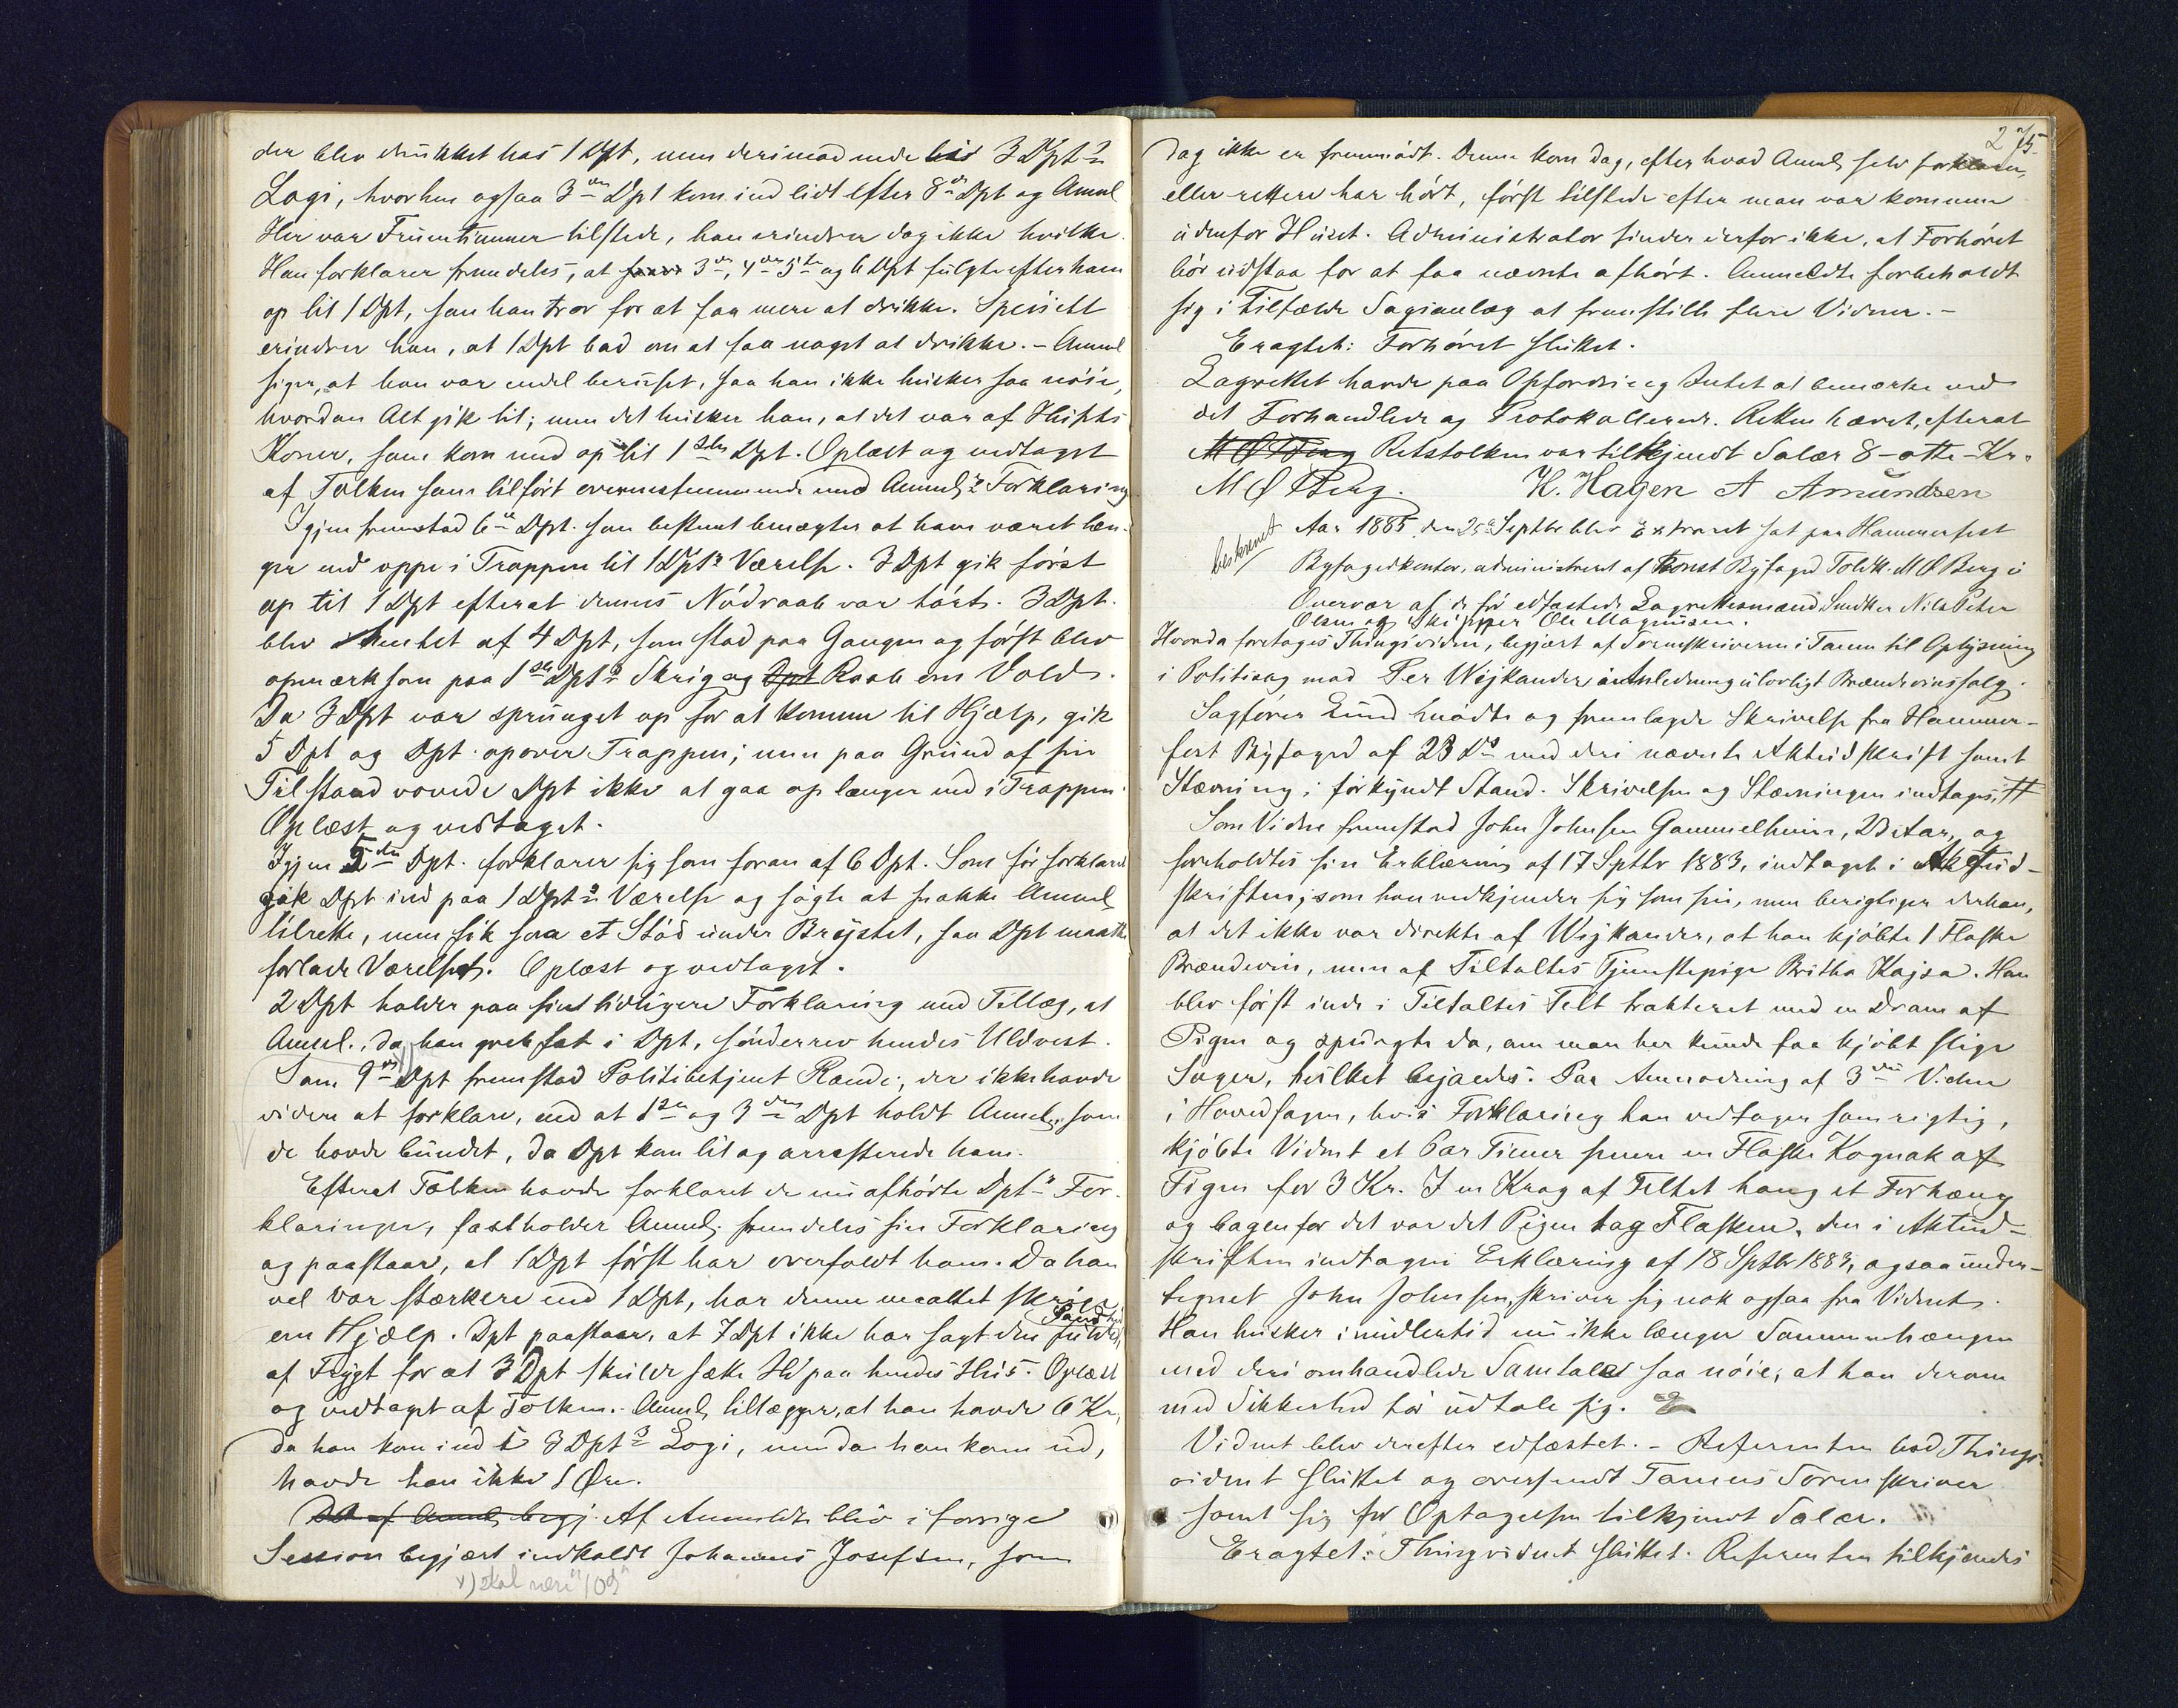 der blev drukket hos 1 Dpt, men derimod nede hos 3 Dpts
Logi, hvorhen ogsaa 3die Dpt kom ind lidt efter 8de Dpt og Anml
Her var Fruentimmer tilstede, han erindrer dog ikke hvilke.
Han forklarer fremdeles, at 3die, 4de 5te og 6 Dpt fulgte efter ham
op til 1 Dpt, som han tror for at faa mere at drikke. Specielt
erindrer han, at 1 Dpt bad om at faa noget at drikke. - Anml
siger, at han var endel beruset, saa han ikke husker saa nöie,
hvordan Alt gik til; men det husker han, at det var af Husets
Koner, som kom med op til 1ste Dpt. Oplæst og vedtaget
af Tolken som tilfört overensstemmende med Anmds Forklaring
Igjen fremstod 6te Dpt. som bestemt benægter at have været læn-
ger end oppe i Trappen til 1 Dpts Værelse. 3 Dpt gik först
op til 1 Dpt efterat dennes Nödraab var hört. 3 Dpt.
blev hentet af 4 Dpt, som stod paa Gangen og först blev
opmærksom paa 1ste Dpts Skrig og Dpt Raab om Vold.
Da 3 Dpt var sprunget op for at komme til Hjælp, gik
5 Dpt og Dpt. opover Trappen; men paa Grund af sin
Tilstand vovede Dpt ikke at gaa op længer end i Trappen.
Oplæst og vedtaget.
Igjen 5te Dpt. forklarer sig som foran af 6 Dpt. Som för forklaret
gik Dpt ind paa 1 Dpts Værelse og sögte at snakke Anmel
tilrette, men fik saa et Stöd under Brystet, saa Dpt maatte
forlade Værelset. Oplæst og vedtaget.
2 Dpt holder paa sin tidligere Forklaring med Tillæg, at
Anml., da han greb fat i Dpt, sönderrev hendes Uldvest.
Som 9de x) Dpt fremstod Politibetjent Rande, der ikke havde
videre at forklare, end at 1ste og 3die Dpt holdt Anmel, som
de havde bundet, da Dpt kom til og arresterede ham.
Efterat Tolken havde forklaret de nu afhörte Dpts For-
klaringer, fastholder Anmel fremdeles sin Forklaring
og paastaar, at 1 Dpt först har overfaldt ham. Da han
vel var stærkere end 1 Dpt, har denne maattet skrige
om Hjælp. Dpt paastaar, at 7 Dpt ikke har sagt den fulde Sand
af Frygt for at 3 Dpt skulde sætte Ild paa hendes Hus. Oplæst
og vedtaget af Tolken. - Anml tillægger, at han havde 6 Kr,
da han kom ind i 3 Dpts Logi, men da han kom ud,
havde han ikke 1 Öre.
Af Anmeldte blev i forrige
Session begjært indkaldt Johannes Josefsen, som
x) skal være "10de"
275
dog ikke er fremmödt. Denne kom dog, efter hvad Anmel selv forklarer,
eller rettere har hört, först tilstede efter man var kommen
udenfor Huset. Administrator finder derfor ikke, at Forhöret
bör udstaa for at faa nævnte afhört. Anmeldte forbeholdt
sig i Tilfælde Sagsanlæg at fremstille flere Vidner. -
Eragtet: Forhöret sluttet.
Lagrettet havde paa Opfordring Intet at bemærke ved
det Forhandlede og Protokollerede. Retten hævet, efterat
M Ø Berg Retstolken var tilkjendt Salær 8 - otte - Kr.
M Ø Berg. H. Hagen A Amundsen
beskrevet
Aar 1885 den 25de Septbr blev Extraret sat paa Hammerfest
Byfogedkontor, administreret af Konst Byfoged Toldk. M Ø Berg i
Overvær af de för edfæstede Lagrettesmænd Snedker Nils Peter
Olsen og Skipper Ole Magnussen.
Hvorda foretoges Thingsvidne, begjært af Sorenskriveren i Tanen til Oplysning
i Politisag mod Per Wejkander i Anledning ulovligt Brændevinssalg.
Sagförer Lund mödte og fremlagde Skrivelse fra Hammer-
fest Byfoged af 23 Ds med deri nævnte Aktudskrift samt
Stævning i forkyndt Stand. Skrivelsen og Stævningen indtages, #
Som Vidne fremstod John Johnsen Gammelheim, 23 Aar, og
foreholdtes sin Erklæring af 17 Septbr 1883, indtaget i Aktud-
skriften, som han vedkjender sig som sin, men berigtiger derhen,
at det ikke var direkte af Wejkander, at han kjöbte 1 Flaske
Brændevin, men af Tiltaltes Tjenestepige Britha Kajsa. Han
blev först inde i Tiltaltes Telt trakteret med en Dram af
Pigen og spurgte da, om man her kunde faa kjöbt slige
Sager, hvilket bejaedes. Paa Anmodning af 3die Vidne
i Hovedsagen, hvis Forklaring han vedtager som rigtig,
kjöbte Vidnet et Par Timer senere en Flaske Kognak af
Pigen for 3 Kr. I en Krog af Teltet hang et Forhæng
og bagenfor det var det Pigen tog Flasken. Den i Aktud-
skriften indtagne Erklæring af 18 Sptbr 1883, ogsaa under-
tegnet John Johnsen, skriver sig nok ogsaa fra Vidnet.
Han husker imidlertid nu ikke længer Sammenhængen
med deri omhandlede Samtale saa nöie, at han derom
med Sikkerhed tör udtale sig.
Vidnet blev derefter edfæstet. - Referenten bad Things-
vidnet sluttet og oversendt Tanens Sorenskriver
samt sig for Optagelsen tilkjendt Salær.
Eragtet: Thingsvidnet sluttet. Referenten tilkjendes